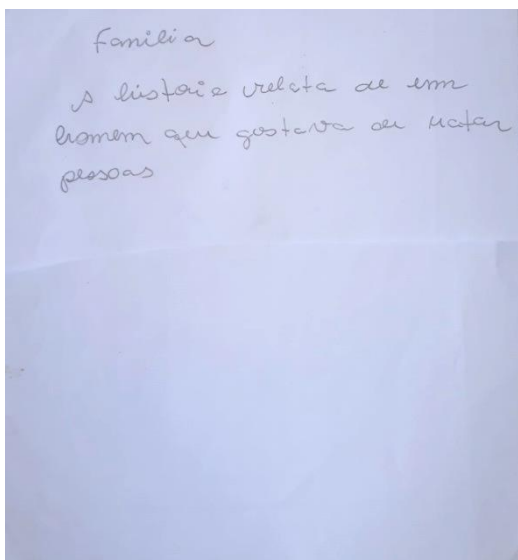 Familia
A história relata de um
homem que gostava de matar
pessoas